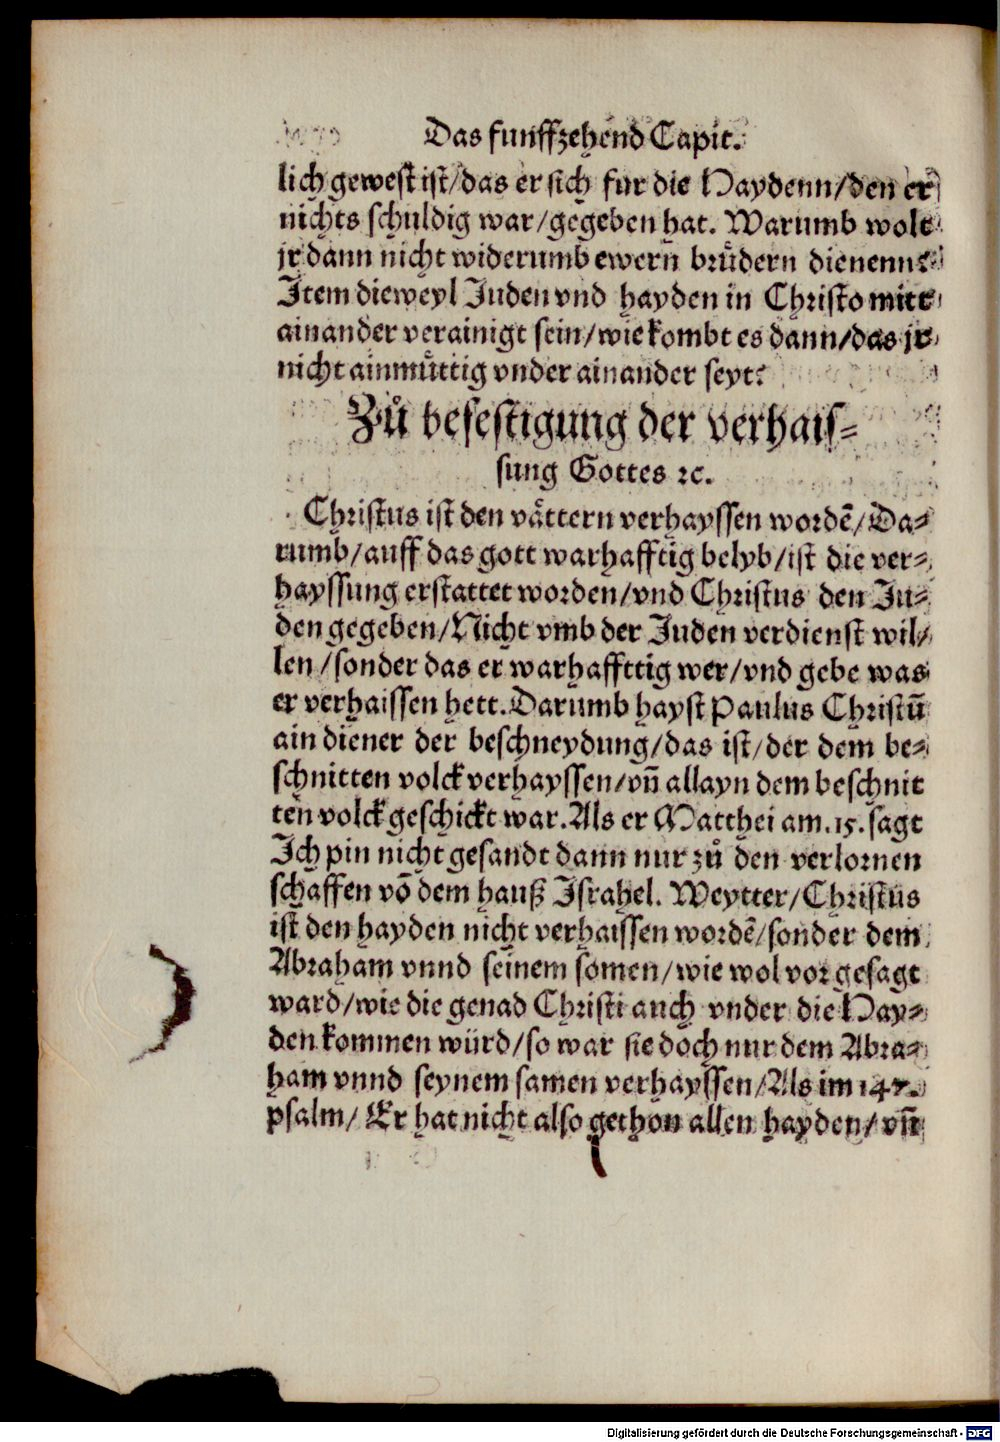 Das funffzehend Capit.
lich gewest ist/das er sich fur die Haydenn/den er
nichts schuldig war/gegeben hat. Warumb wolt
jr dann nicht widerumb ewern bruͤdern dienenn?
Item dieweyl Juden vnd hayden in Christo mitt
ainander verainigt sein/wie kombt es dann/das jr
nicht ainmuͤttig vnder ainander seyt?
Zuͦ befestigung der verhais⸗
sung Gottes ꝛc.
Christus ist den vaͤttern verhayssen wordē/Da⸗
rumb/auff das gott warhafftig belyb/ist die ver⸗
hayssung erstattet worden/vnd Christus den Ju⸗
den gegeben/Nicht vmb der Juden verdienst wil/
len/sonder das er warhaffttig wer/vnd gebe was
er verhaissen hett.Darumb hayst Paulus Christū
ain diener der beschneydung/das ist/der dem be⸗
schnitten volck verhayssen/vn̄ allayn dem beschnit
ten volck geschickt war.Als er Matthei am.15.sagt
Ich pin nicht gesandt dann nur zuͦ den verlornen
schaffen vō dem hauß Israhel. Weytter/Christus
ist den hayden nicht verhaissen wordē/sonder dem
Abraham vnnd seinem somen/wie wol vor gesagt
ward/wie die genad Christi auch vnder die Hay⸗
den kommen würd/so war sie doch nur dem Abra⸗
ham vnnd seynem samen verhayssen/Als im 147.
psalm/ Er hat nicht also gethon allen hayden/ vn̄
Digitalisierung gefördert durch die Deutsche Forschungsgemeinschaft - DFG